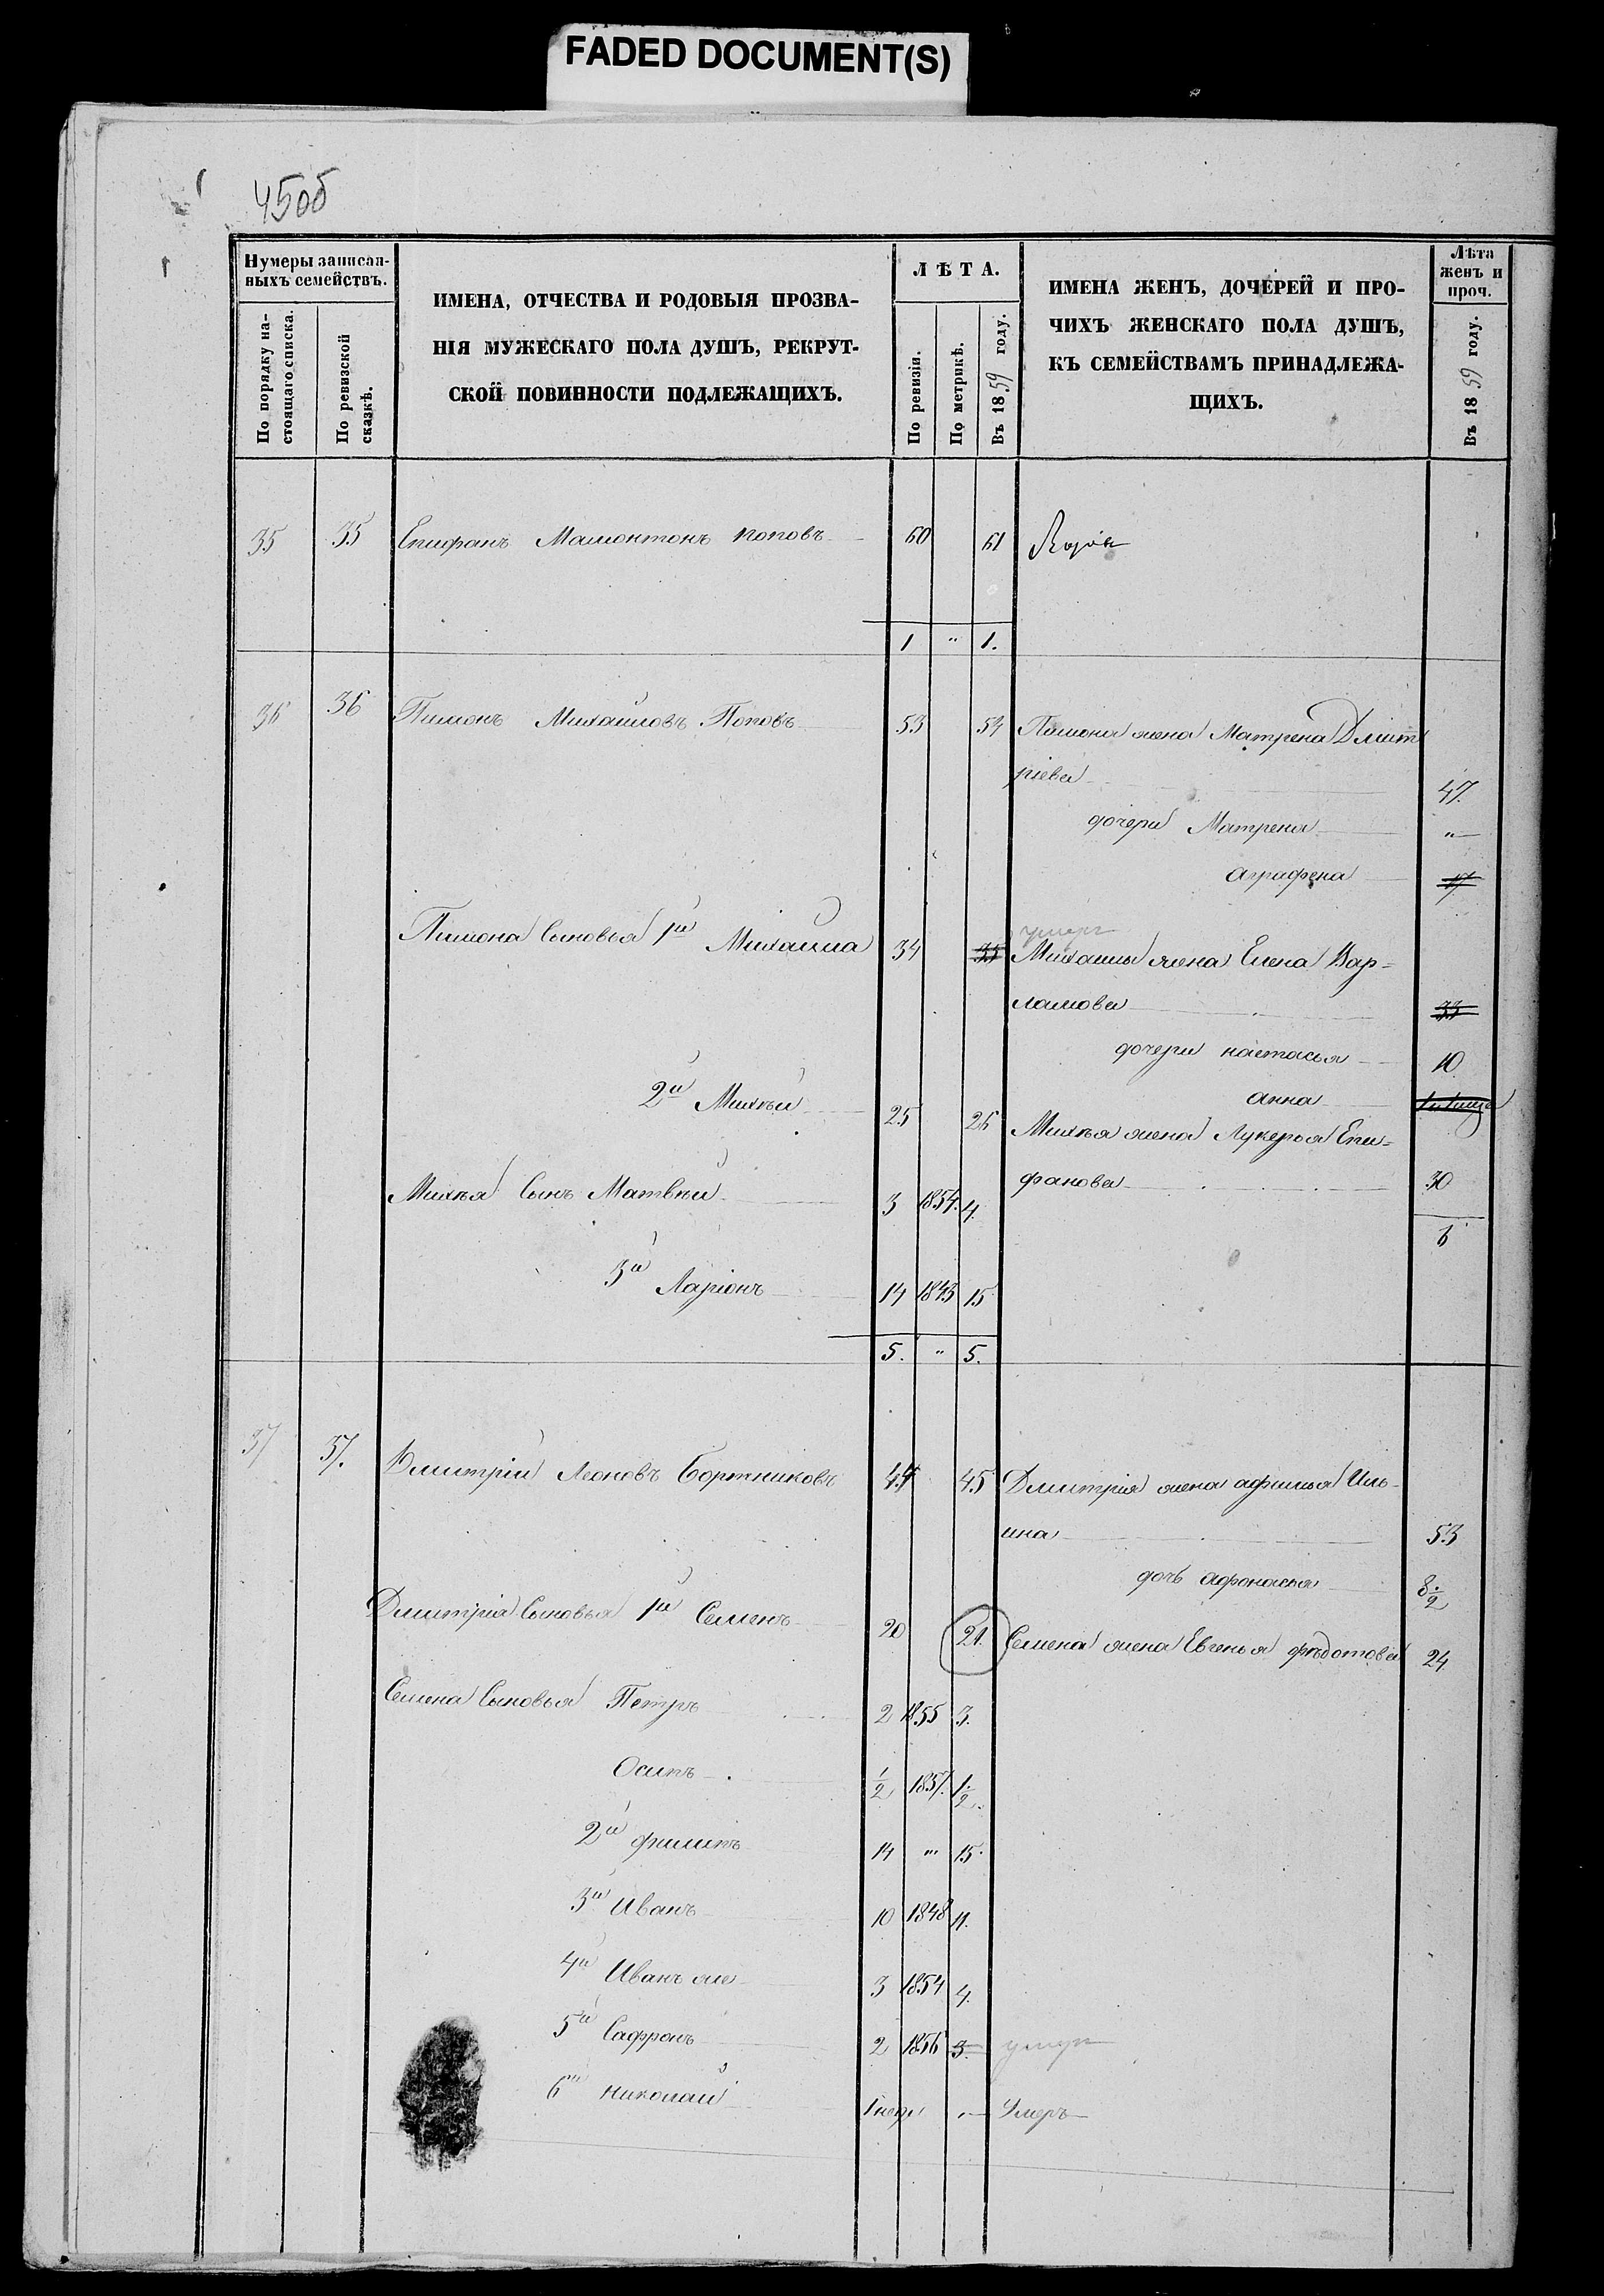 FADED DOCUMENT(S)
45об
Нумеры записан-
ныхъ семействъ.
По порядку на-
стоящаго списка.
По ревизской
сказкѣ.
ИМЕНА, ОТЧЕСТВА И РОДОВЫЯ ПРОЗВА-
НІЯ МУЖЕСКАГО ПОЛА ДУШЪ, РЕКРУТ-
СКОЙ ПОВИННОСТИ ПОДЛЕЖАЩИХЪ.
ЛѢТА.
По ревизіи.
По метрикѣ.
Въ 1859 году.
ИМЕНА ЖЕНЪ, ДОЧЕРЕЙ И ПРО-
ЧИХЪ ЖЕНСКАГО ПОЛА ДУШЪ,
КЪ СЕМЕЙСТВАМЪ ПРИНАДЛЕЖА-
ЩИХЪ.
Лѣта
женъ и
проч.
Въ 1859 году.
35 35 Епифанъ Мамонтонъ поповъ 60 61
1 " 1.
36 36 Пимонъ Михаиловъ Поповъ 53 54 Пимона жена Матрена Дмит
ріева 47.
дочери Матрена "
аграфена 17
умеръ
Пимона Сыновья 1й Михаила 34 35 Михаилы жена Елена Вар=
ламова 33
дочери настасья 10
анна
2й Михѣй 25 26 Михѣя жена Лукерья Епи=
фанова 30
Михѣя Сынъ Матвѣй 3 1854. 4.
6
3й Ларіонъ 14 1843 15
5. " 5.
37 37. Дмитрій Леоновъ Бортниковъ 44 45 Дмитрія жена афимья Иль-
ина 53
дочь афонасья 8 1/2
Дмитрія Сыновья 1й Семенъ 20 21. Семена жена Евгенья фѣдотова 24
Семена Сыновья Петръ 2 1855 3.
Осипъ 1/2 1857. 1 1/2.
2й филипъ 14 " 15.
3й Иванъ 10 1848 11.
4й Иванъ же 3 1854 4.
5й Сафронъ 2 1856 3. умеръ
6й николай 1 неде " Умеръ